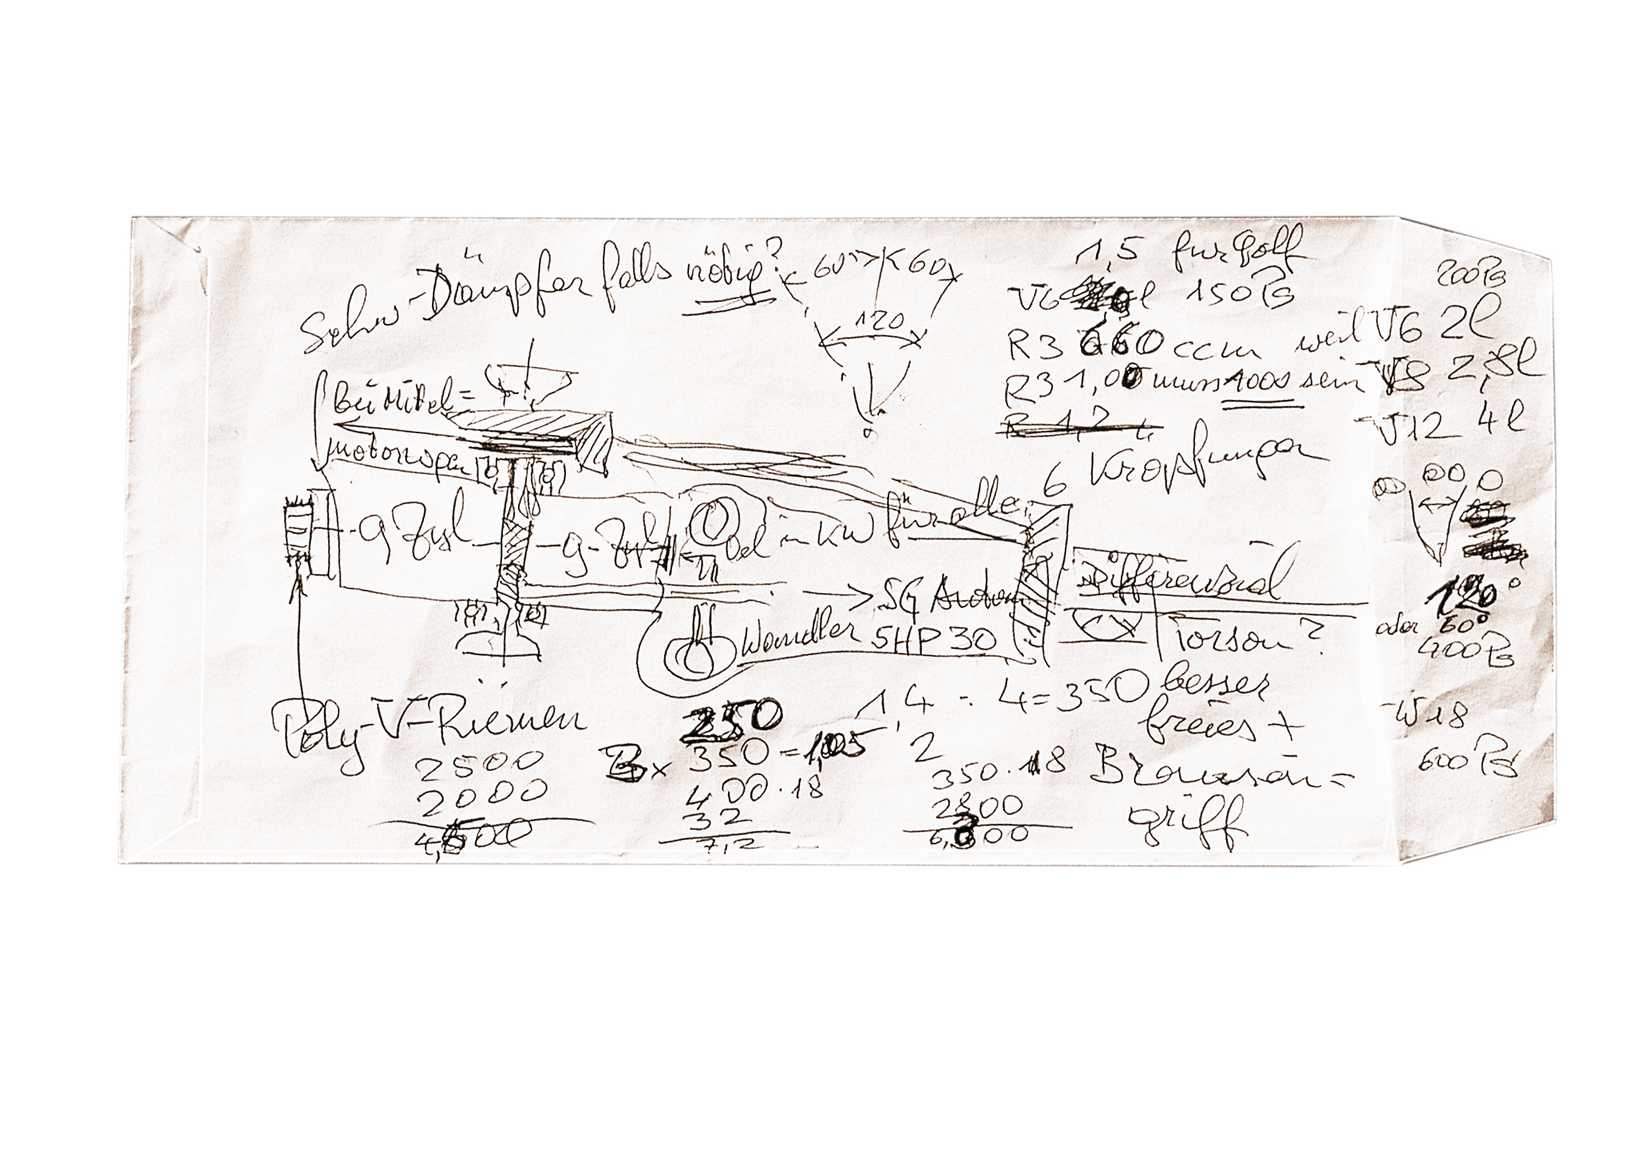 Schw-Dämpfer falls nötig?
60° 60
120
1,5 für Golf
V6 l 150 PS
R3 660 ccm weil V6 2l
R3 1,00 muss 1000 sein V8 2,8l
R 1,2 V12 4l
200PS
6 Kröpfungen
Bei Mittel=
motorwagen
9 Zyl
9-Zyl
Öl in KW für alle
→ 5G Autom
Wandler 5HP30
Differenzial
Torson?
besser
freies +
Browsin=
griff
120°
oder 60°
400PS
W18
600 PS
Poly-V-Riemen
2500
2000
4,500
250
3x 350 = 1,05
400·18
32
7,2
1,4 : 4 = 350
2
350·18
2800
6,300